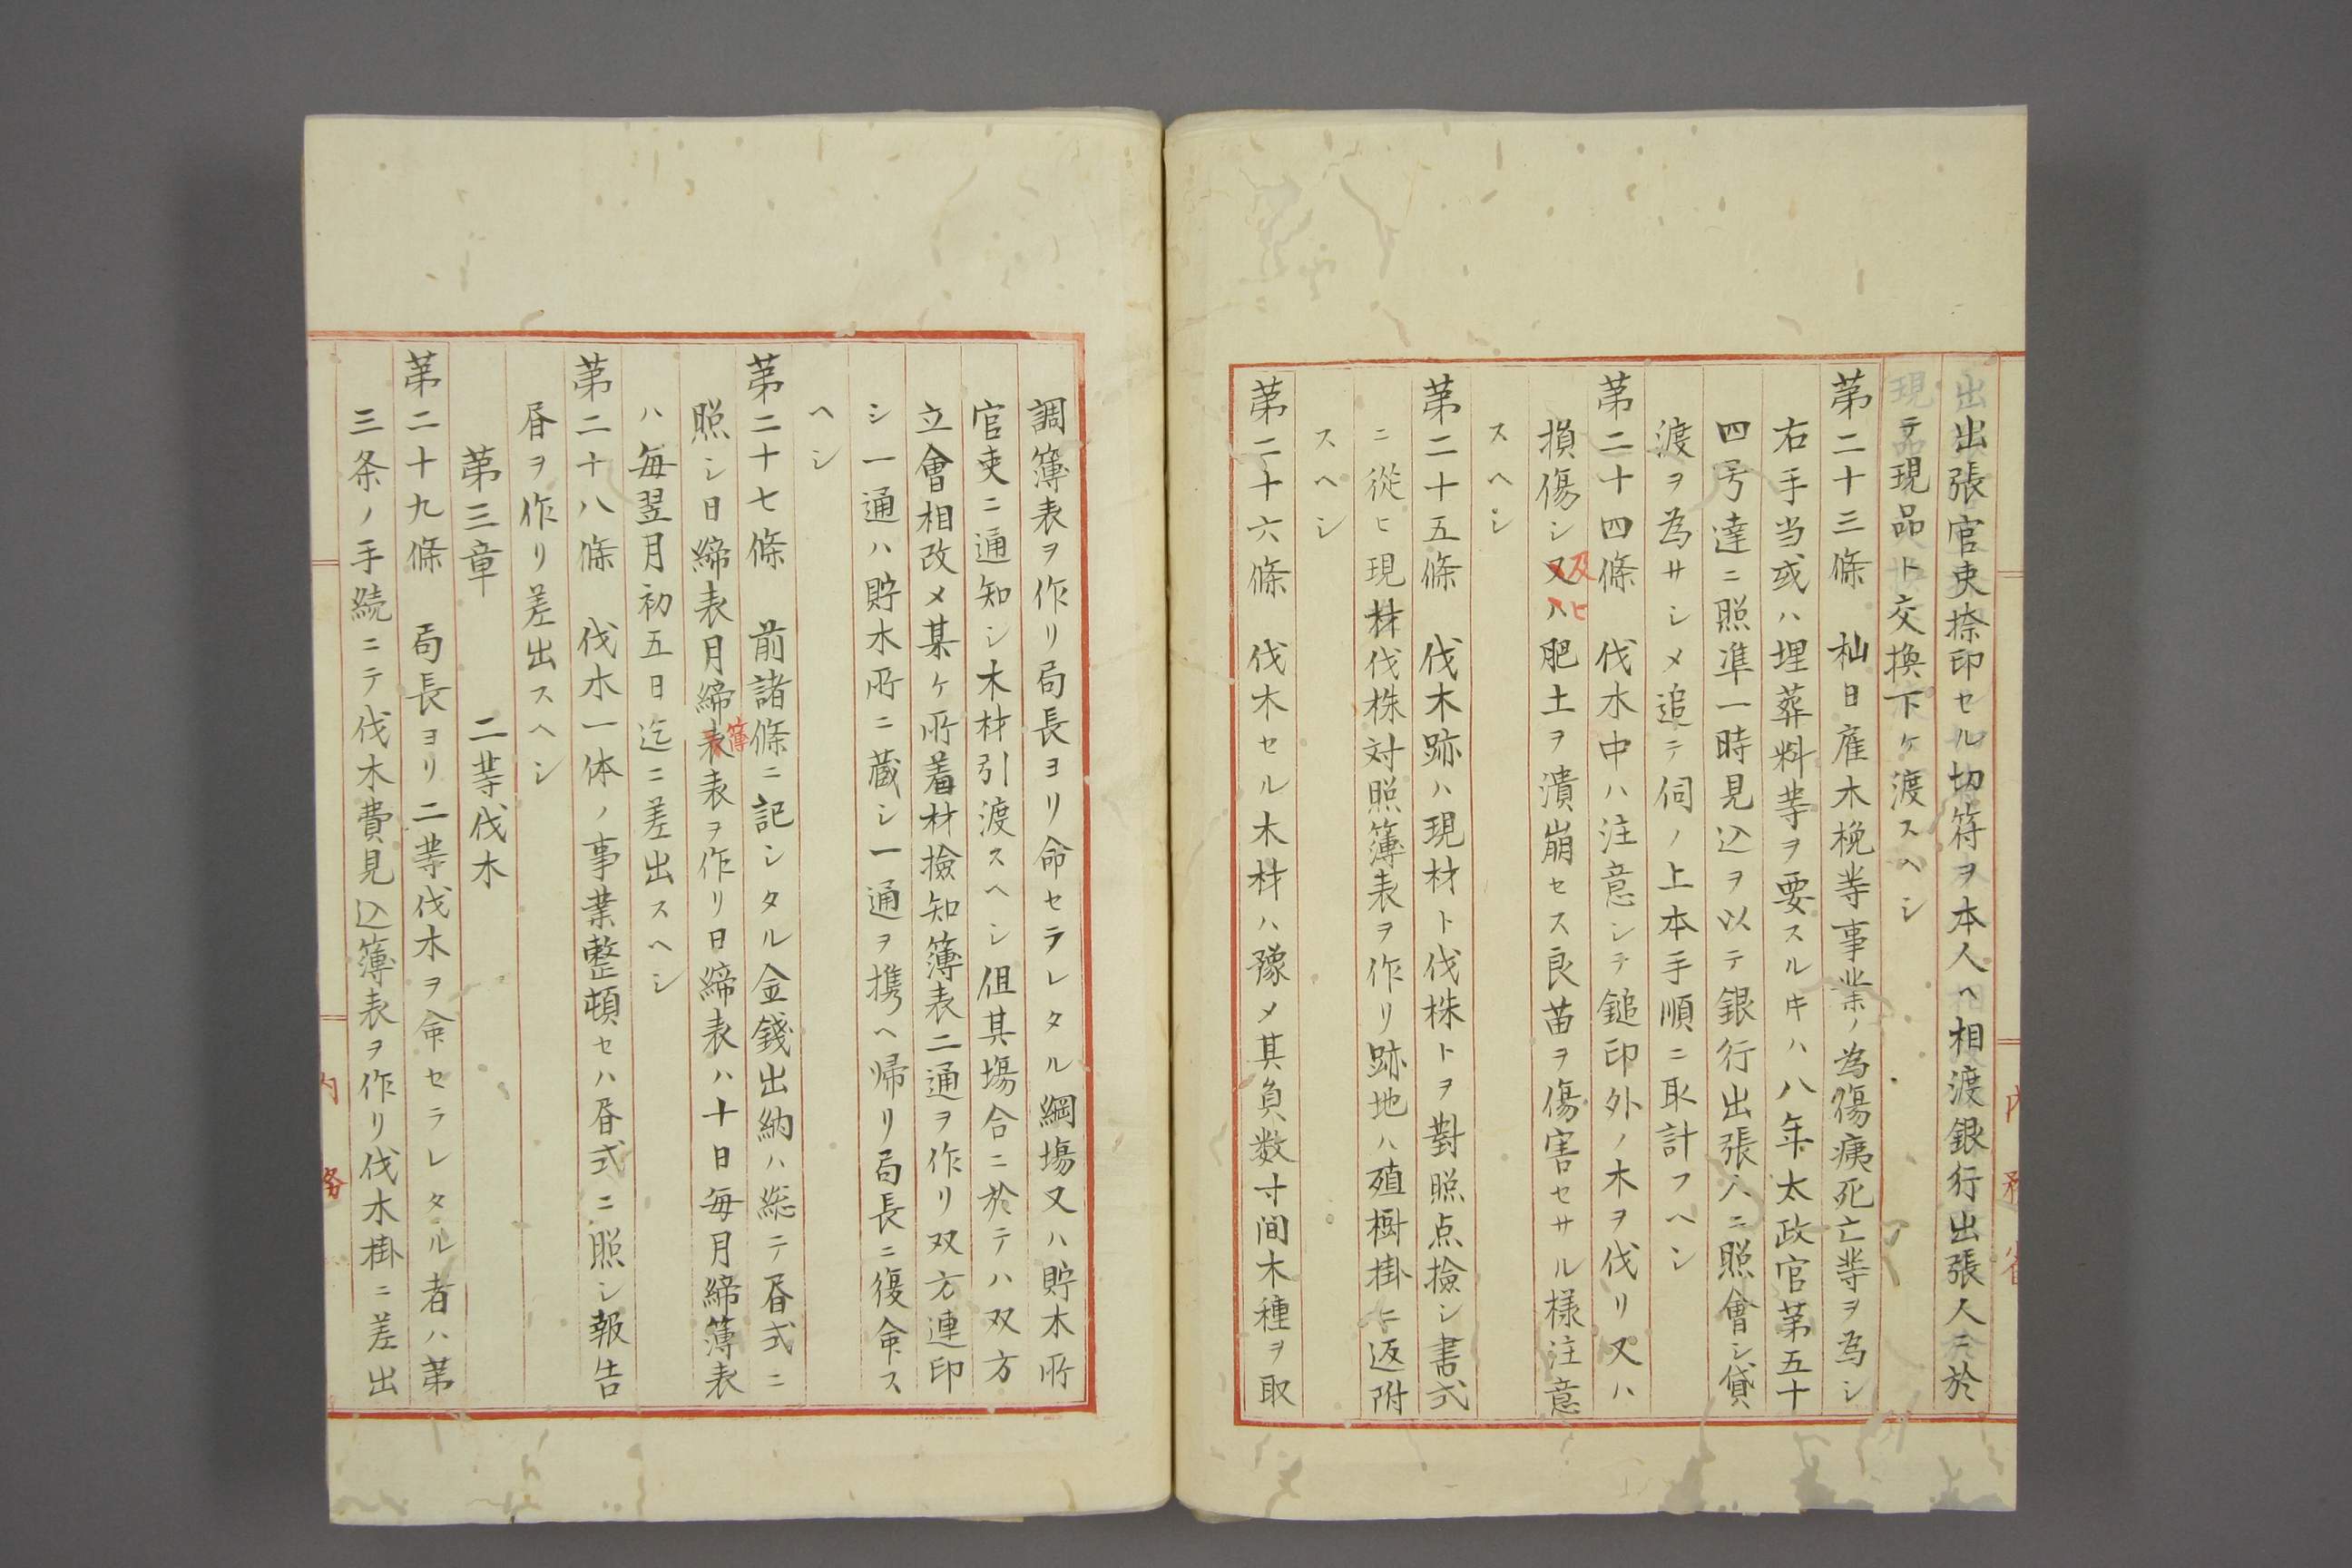 出張官吏捺印セル切符ヲ本人ヘ相渡銀行出張人ニ於
テ現品ト交換下ケ渡スヘシ
第二十三條　杣日雇木挽等事業ノ為傷痍死亡等ヲ為シ
右手当或ハ埋葬料等ヲ要スルキハ八年太政官第五十
四号達ニ照準一時見込ヲ以テ銀行出張人ニ照會シ貸
渡ヲ為サシメ追テ伺ノ上本手順ニ取計フヘシ
第二十四條　伐木中ハ注意シテ鎚印外ノ木ヲ伐リ又ハ
損傷シ又ハ肥土ヲ潰崩セス良苗ヲ傷害セサル様注意
及ヒ
スヘシ
第二十五條　伐木跡ハ現材ト伐株トヲ對照点撿シ書式
ニ從ヒ現材伐株対照簿表ヲ作リ跡地ハ殖樹掛ニ返附
スヘシ
第二十六條　伐木セル木材ハ豫メ其員数寸间木種ヲ取
内務省
調簿表ヲ作リ局長ヨリ命セラレタル綱場又ハ貯木所
官吏ニ通知シ木材引渡スヘシ但其場合ニ於テハ双方
立會相改メ某ヶ所着材撿知簿表二通ヲ作リ双方連印
シ一通ハ貯木所ニ蔵シ一通ヲ携ヘ帰リ局長ニ復命ス
ヘシ
第二十七條　前諸條ニ記シタル金錢出納ハ総テ書式ニ
照シ日締表月締表表ヲ作リ日締表ハ十日毎月締簿表
簿
ハ毎翌月初五日迄ニ差出スヘシ
第二十八條　伐木一体ノ事業整頓セハ書式ニ照シ報告
書ヲ作リ差出スヘシ
第三章　二等伐木
第二十九條　局長ヨリ二等伐木ヲ命セラレタル者ハ第
三条ノ手続ニテ伐木費見込簿表ヲ作リ伐木掛ニ差出
内務